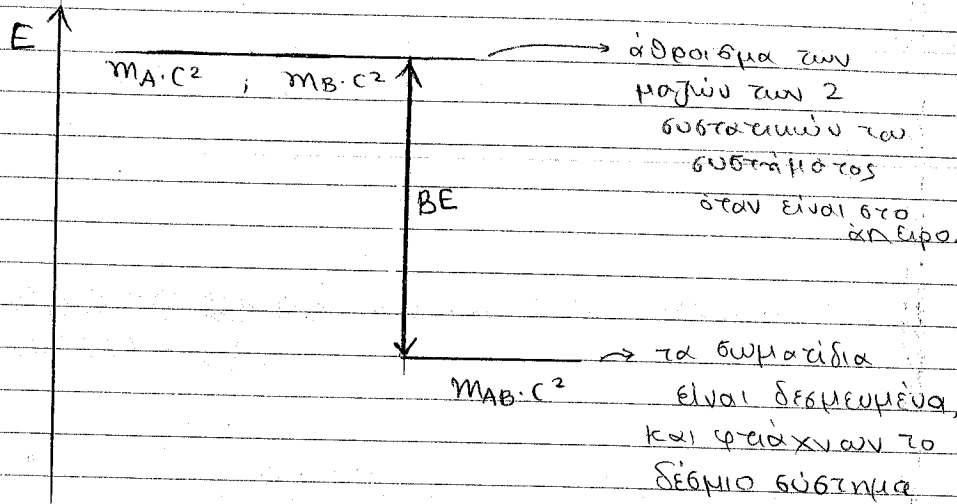 E
m_A·C² ; m_B·C²
άθροισμα των
μαζών των 2
συστατικών του
συστήματος
όταν είναι στο
άπειρο.
BE
m_AB·C²
τα σωματίδια
είναι δεσμευμένα,
και φτιάχνων το
δέσμιο σύστημα